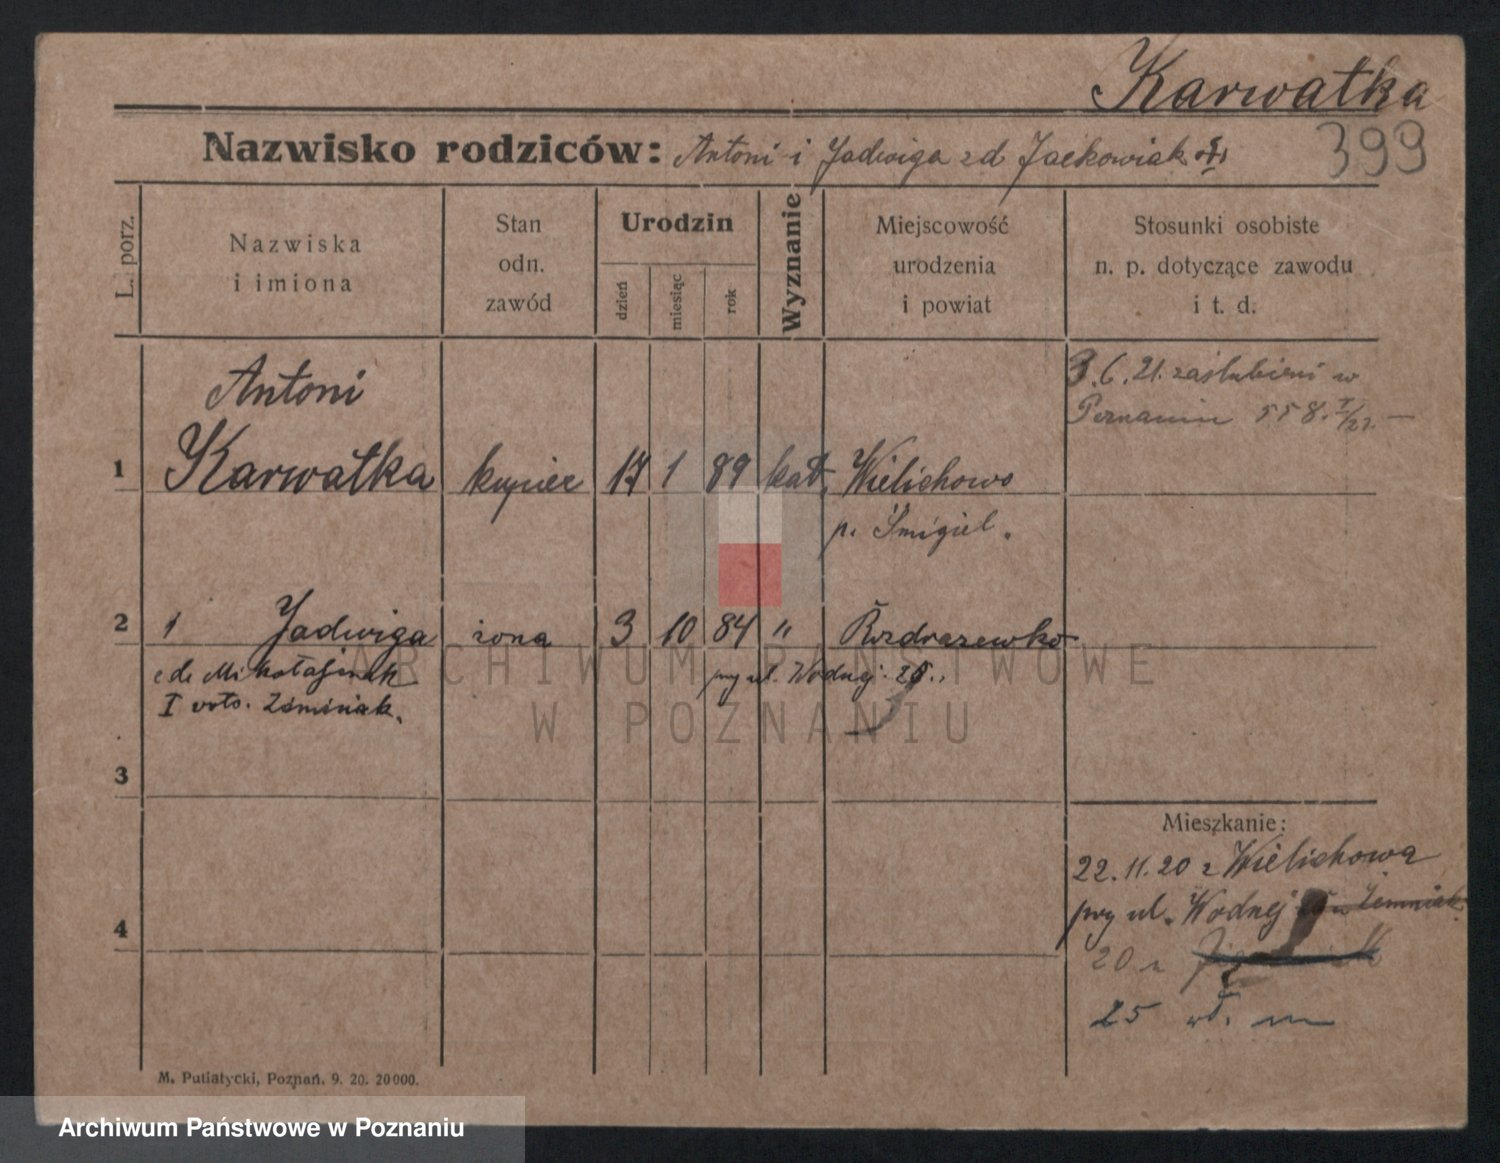 Karwatka
399
Nazwisko rodziców: Antoni i Jadwiga zd Jackowiak
L. porz.
Nazwiska
i imiona
Stan
odn.
zawód
Urodzin
dzień
miesiąc
rok
Wyznanie
Miejscowość
urodzenia
i powiat
Stosunki osobiste
n. p. dotyczące zawodu
i t. d.
3.6.21. zaślubieni w
Poznaniu 558.
Antoni
1 Karwatka kupiec 17 1 89 kat. Wielichowo
p. Śmigiel.
2 1 Jadwiga żona 3 10 84 " Rozdrazewko
z d. Mikołajczak przy ul. Wodnej
I voto. Zimniak.
3
Mieszkanie:
22.11.20 z Wielichowa
przy ul. Wodnej
4
20
25 wł. m
M. Putiatycki, Poznań. 9. 20. 20000.
ARCHIWUM PAŃSTWOWE
W POZNANIU
Archiwum Państwowe w Poznaniu